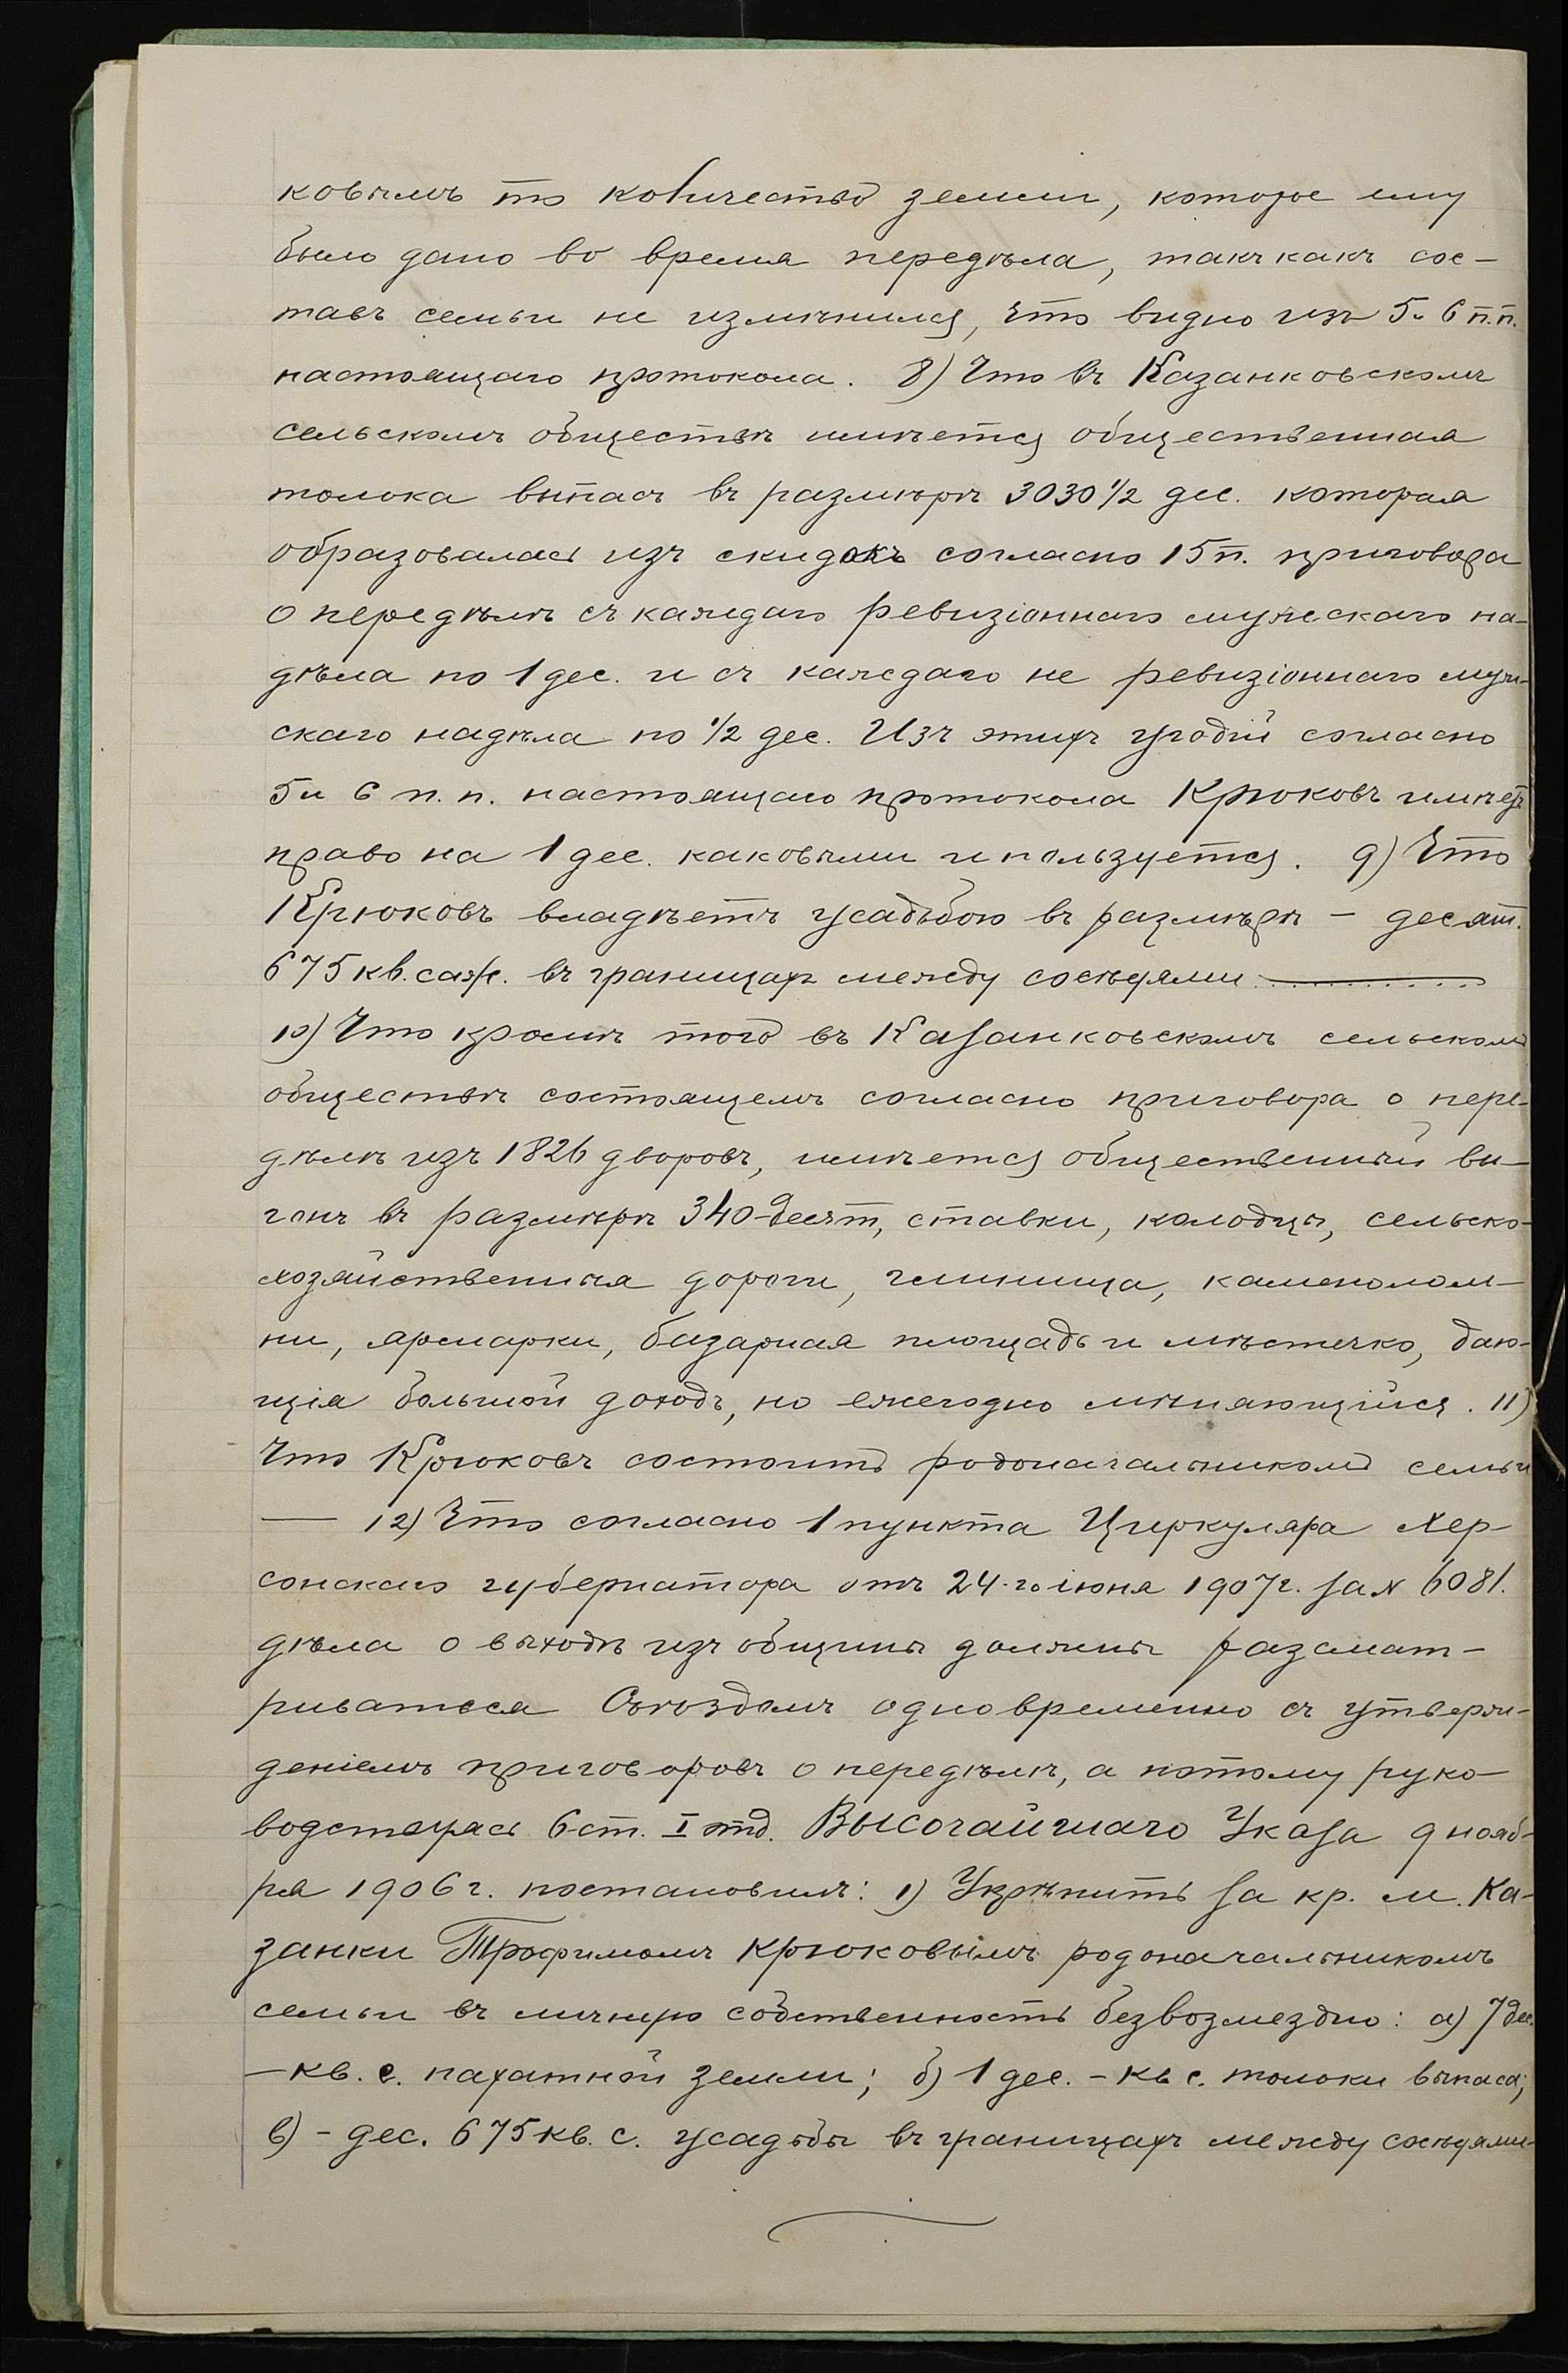 ковымъ то количество земли, которое ему
было дано во время передѣла, такъ какъ сос-
тавъ семьи не измѣнился, что видно изъ 5 и 6 п.п.
настоящаго протокола. 8) Что въ Казанковскомъ
сельскомъ обществѣ имѣется общественная
толока выпасъ въ размѣрѣ 3030 1/2 дес. которая
образовалась изъ скидокъ согласно 15 п. приговора
о передѣлѣ съ каждаго ревизіоннаго мужескаго на-
дѣла по 1 дес. и съ каждаго не ревизіоннаго муж-
скаго надѣла по 1/2 дес. Изъ этихъ угодій согласно
5 и 6 п.п. настоящаго протокола Крюковъ имѣетъ
право на 1 дес. каковыми и пользуется. 9) Что
Крюковъ владѣетъ усадьбою въ размѣрѣ – десят.
675 кв. саж. въ границахъ между сосѣдями
10) Что кромѣ того въ Казанковскомъ сельскомъ
обществѣ состоящемъ согласно приговора о пере-
дѣлѣ изъ 1826 дворовъ, имѣется общественный вы-
гонъ въ размѣрѣ 340 десят, ставки, колодцы, сельско-
хозяйственныя дороги, глинища, каменолом-
ни, ярмарки, базарная площадь и мѣстечко, даю-
щія большой доходъ, но ежегодно мѣняющійся. 11)
Что Крюковъ состоитъ родоначальникомъ семьи
— 12) Что согласно 1 пункта Циркуляра Хер-
сонскаго губернатора отъ 24-го іюня 1907 г. за № 6081.
дѣла о выходѣ изъ общины должны разсмат-
риваться Съѣздомъ одновременно съ утверж-
деніемъ приговоровъ о передѣлѣ, а потому руко-
водствуясь 6 ст. I отд. Высочайшаго Указа 9 нояб-
ря 1906 г. постановилъ: 1) Укрѣпить за кр. м. Ка-
занки Трофимомъ Крюковымъ родоначальникомъ
семьи въ личную собственность безвозмездно: а) 7 дес.
– кв. с. пахатной земли; б) 1 дес. – кв с. толоки выпаса;
в) – дес. 675 кв. с. усадьбы въ границахъ между сосѣдями-